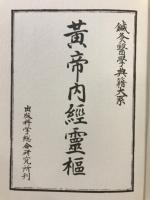 鍼灸醫學典籍大系
黃帝內經靈樞
出版科学総合研究所刊